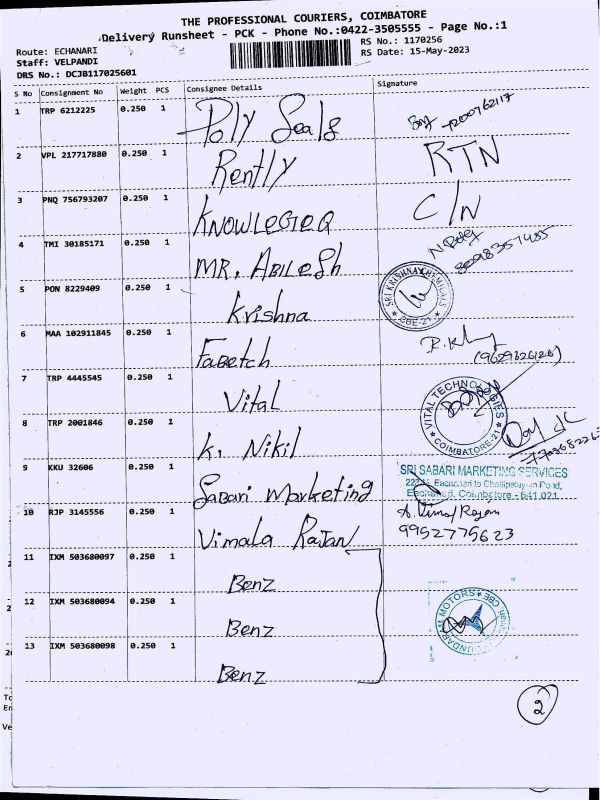 THE PROFESSIONAL COURIERS, COIMBATORE
Delivery Runsheet - PCK - Phone No.:0422-3505555 - Page No.:1
Route: ECHANARI
RS No.: 1170256
Staff: VELPANDI
RS Date: 15-May-2023
DRS No.: DCJB117025601
S No Consignment No Weight PCS Consignee Details Signature
1 TRP 6212225 0.250 1 Poly Seals
2 VPL 217717880 0.250 1 Rently RTN
3 PNQ 756793207 0.250 1 KNOWLEGEQ C/N
4 TMI 30185171 0.250 1 MR. ABILESH
5 PON 8229409 0.250 1 Krishna SRI KRISHNA CHEMICALS CBE-21
6 MAA 102911845 0.250 1 Fabetch (9629826126)
7 TRP 4445545 0.250 1 Vital VITAL TECHNOLOGIES COIMBATORE-21
8 TRP 2001846 0.250 1 K. Nikil
9 KKU 32606 0.250 1 Sabari Marketing SRI SABARI MARKETING SERVICES
Coimbatore - 641 021
10 RJP 3145556 0.250 1 Vimala Rajan A. Vimal Rajan
9952775623
11 IXM 503680097 0.250 1 Benz
12 IXM 503680094 0.250 1 Benz MOTORS CBE
13 IXM 503680098 0.250 1 Benz
2